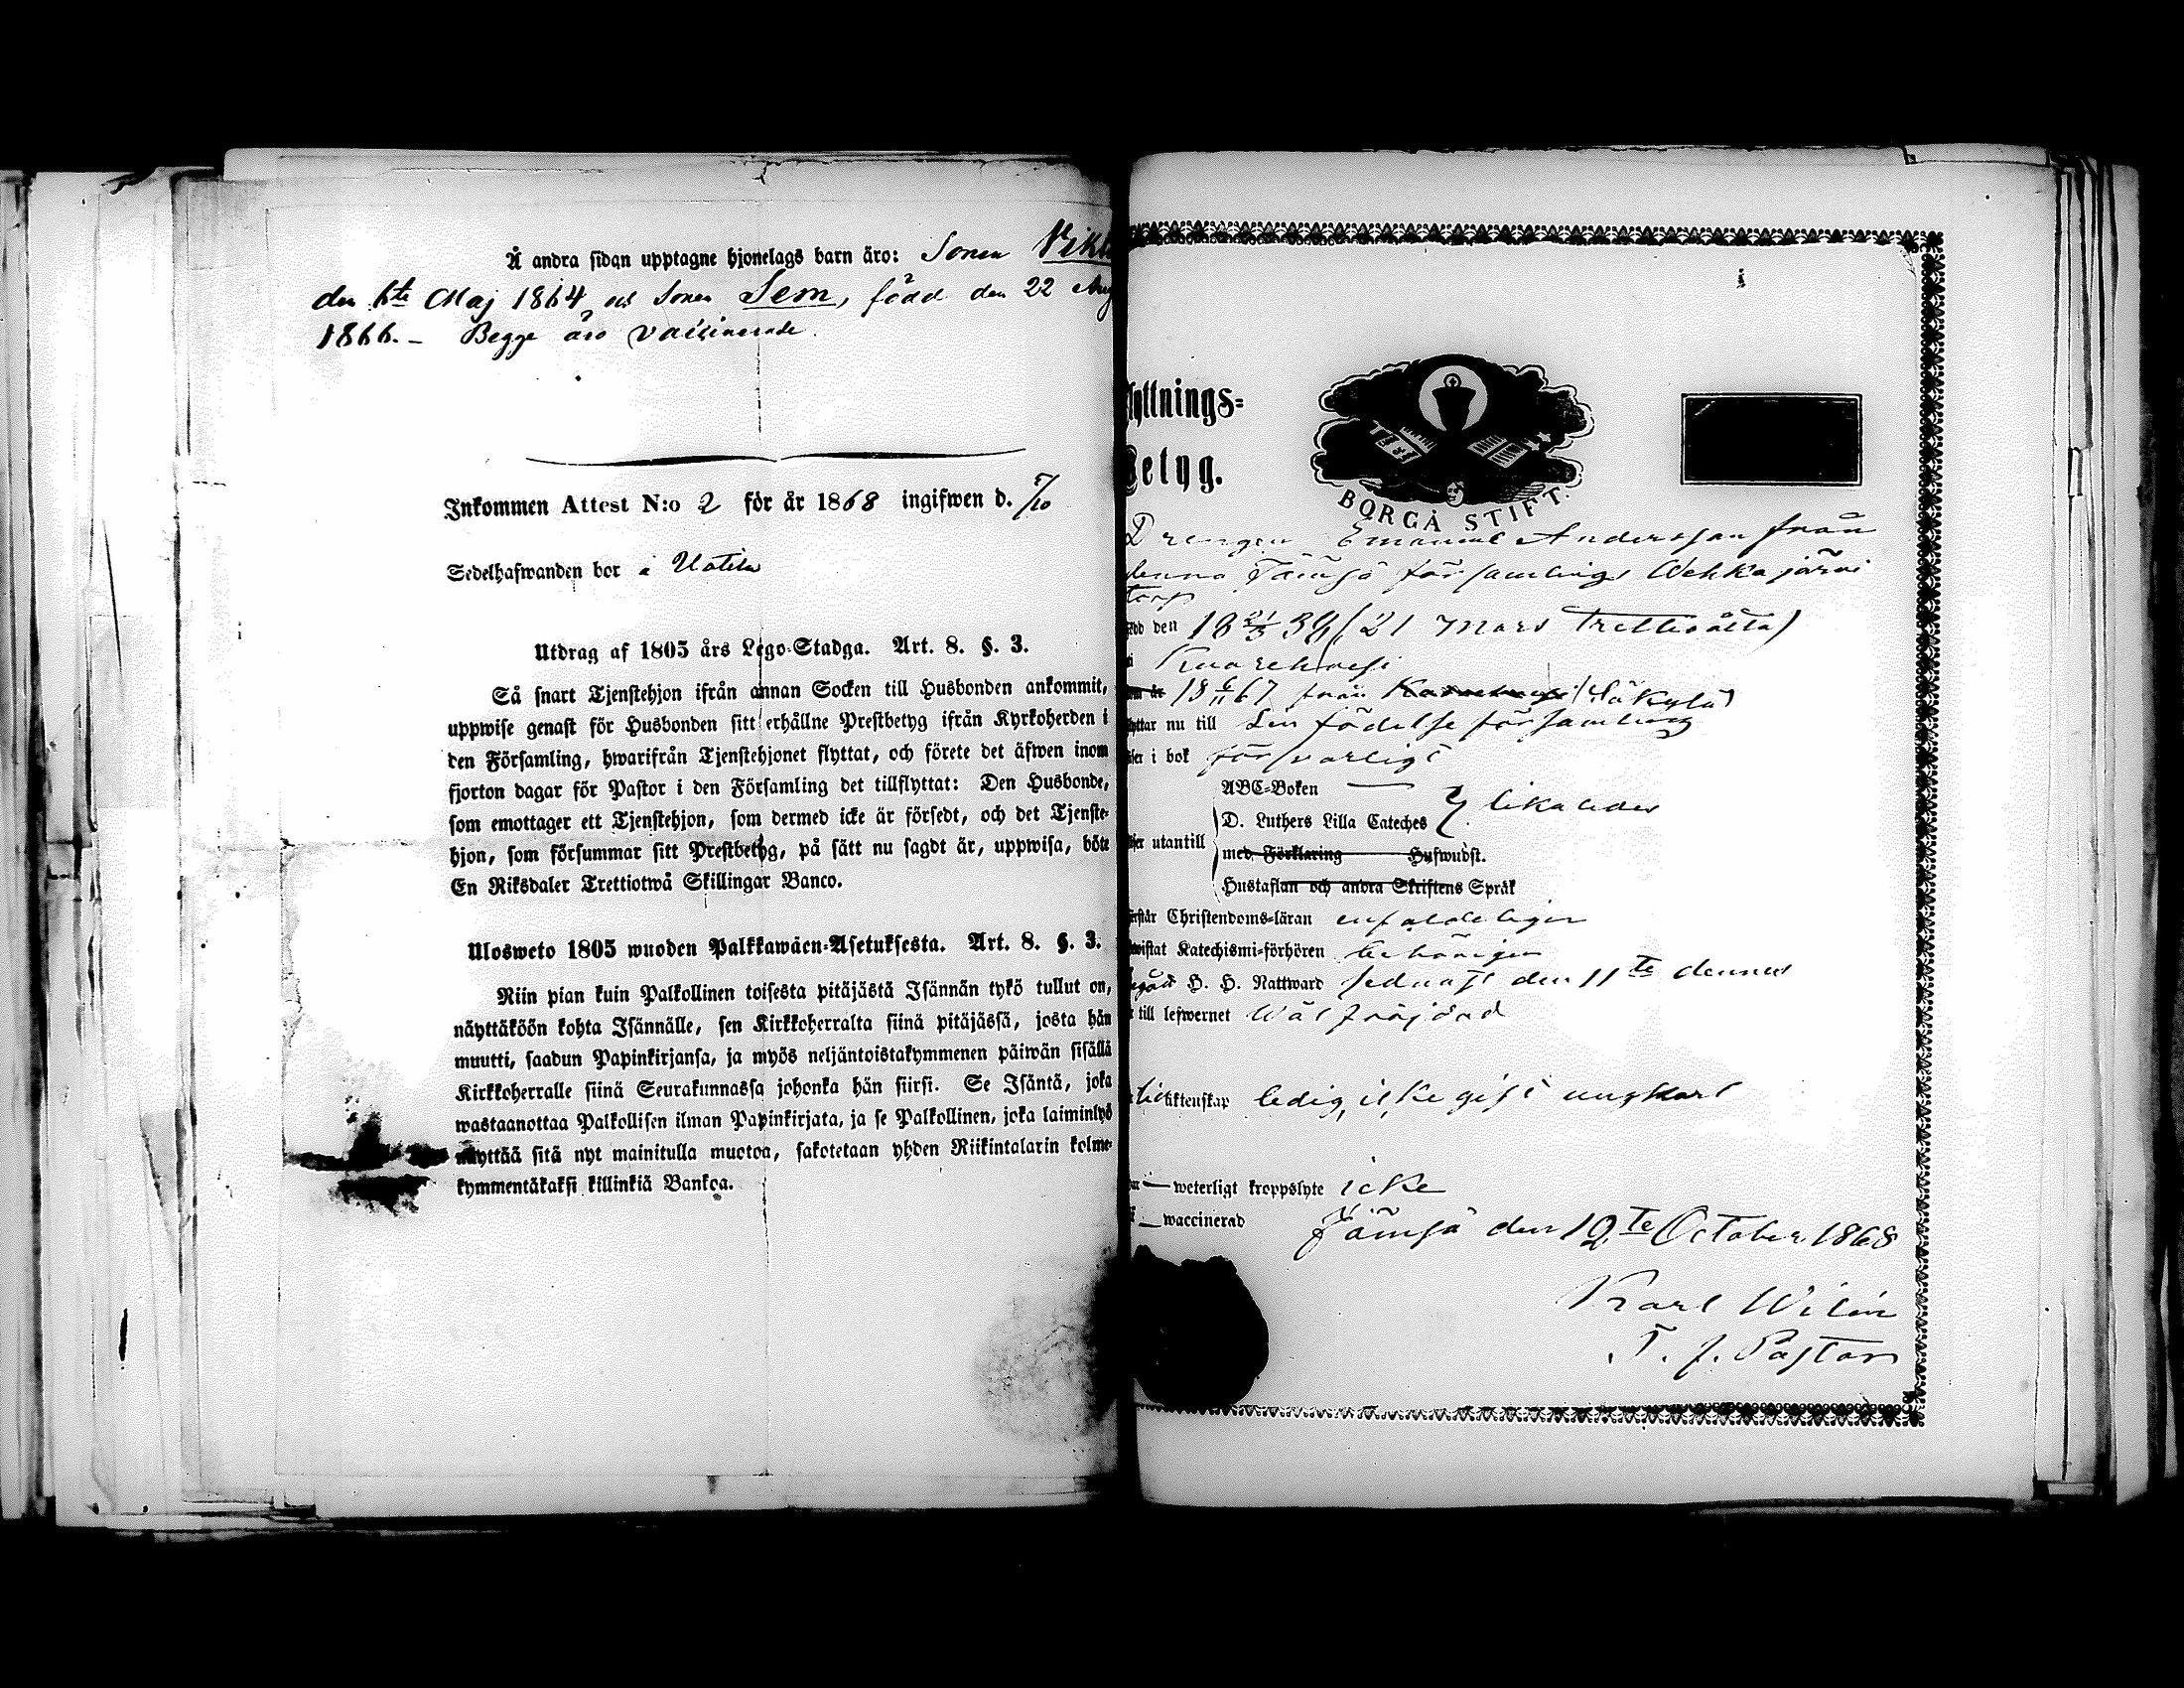 Å andra sidan upptagne hjonelags barn äro: Sonen Vikt
den 6te Maj 1864 och Sonen Sem, född den 22 Aug
1866. – Begge äro vaccinerade.
Inkommen Attest N:o 2 för år 1868 ingifwen d. 5/10
Sedelhafwanden bor å Uotila
Utdrag af 1805 års Lego-Stadga. Art. 8. §. 3.
Så snart Tjenstehjon ifrån annan Socken till Husbonden ankommit,
uppwise genast för Husbonden sitt erhållne Prestbetyg ifrån Kyrkoherden i
den Församling, hwarifrån Tjenstehjonet flyttat, och förete det äfwen inom
fjorton dagar för Pastor i den Församling det tillflyttat: Den Husbonde,
som emottager ett Tjenstehjon, som dermed icke är försedt, och det Tjenste-
hjon, som försummar sitt Prestbetyg, på sätt nu sagdt är, uppwisa, böte
En Riksdaler Trettiotwå Skillingar Banco.
Ulosweto 1805 wuoden Palkkawäen-Asetuksesta. Art. 8. §. 3.
Niin pian kuin Palkollinen toisesta pitäjästä Isännän tykö tullut on,
näyttäköön kohta Isännälle, sen Kirkkoherralta siinä pitäjässä, josta hän
muutti, saadun Papinkirjansa, ja myös neljäntoistakymmenen päiwän sisällä
Kirkkoherralle siinä Seurakunnassa johonka hän siirsi. Se Isäntä, joka
wastaanottaa Palkollisen ilman Papinkirjata, ja se Palkollinen, joka laiminlyö
näyttää sitä nyt mainitulla muotoa, sakotetaan yhden Riikintalarin kolme-
kymmentäkaksi killinkiä Bankoa.
lyttnings-
Betyg.
BORGÅ STIFT.
Drengen Emanuel Andersson från
denna Jämsä församlings Wehkajärvi
torp
född den 18 21/3 38 (21 Mars Trettioåtta)
i Kuorehvesi
18 6/11 67 från (Säkylä)
lyttar nu till Sin födelse församling
i bok försvarligt
ABC-Boken —
D. Luthers Lilla Cateches } likaledes
utantill
med Förklaring Hufwudst.
Hustaflan och andra Skriftens Språk
Christendoms-läran enfaldeligen
wistat Katechismi-förhören behörigen
H. H. Nattward sednast den 11te dennes
till lefwernet Wälfräjdad
äktenskap ledig, icke gift ungkarl
— weterligt kroppslyte icke
— waccinerad
Jämsä den 12te October 1868
Karl Wilén
T. f. Pastor